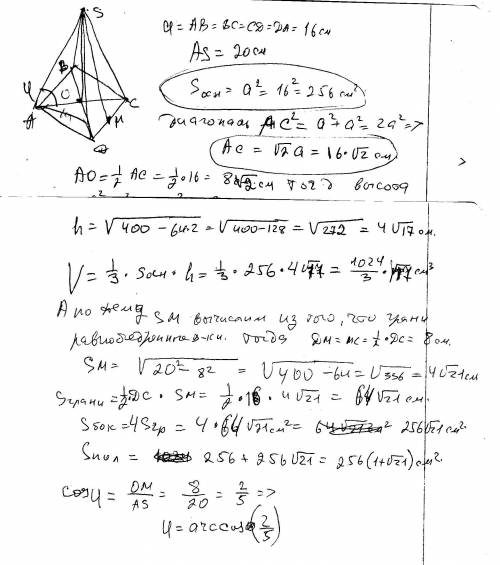 S
B
φ
O
A
C
M
D
a = AB = BC = CD = DA = 16 см
AS = 20 см
Sосн = a² = 16² = 256 см²
диагональ AC² = a² + a² = 2a² =>
AC = √2 a = 16·√2 см
AO = 1/2 AC = 1/2·16 = 8√2 см тогда высота
h = √400 - 64·2 = √400-128 = √272 = 4√17 см.
V = 1/3 · Sосн · h = 1/3 · 256 · 4√17 = 1024/3 · √17 см³
Апофему SM вычислим из того, что грани
равнобедренные тр-ки. тогда DM = MC = 1/2 · DC = 8 см.
SM = √20² - 8² = √400 - 64 = √336 = 4√21 см
Sграни = 1/2 · DC · SM = 1/2 · 16 · 4√21 = 64√21 см.
Sбок = 4Sгр = 4 · 64√21 см² = 256√21 см²
Sпол = 256 + 256√21 = 256(1+√21) см².
cos φ = DM/AS = 8/20 = 2/5 =>
φ = arccos(2/5)